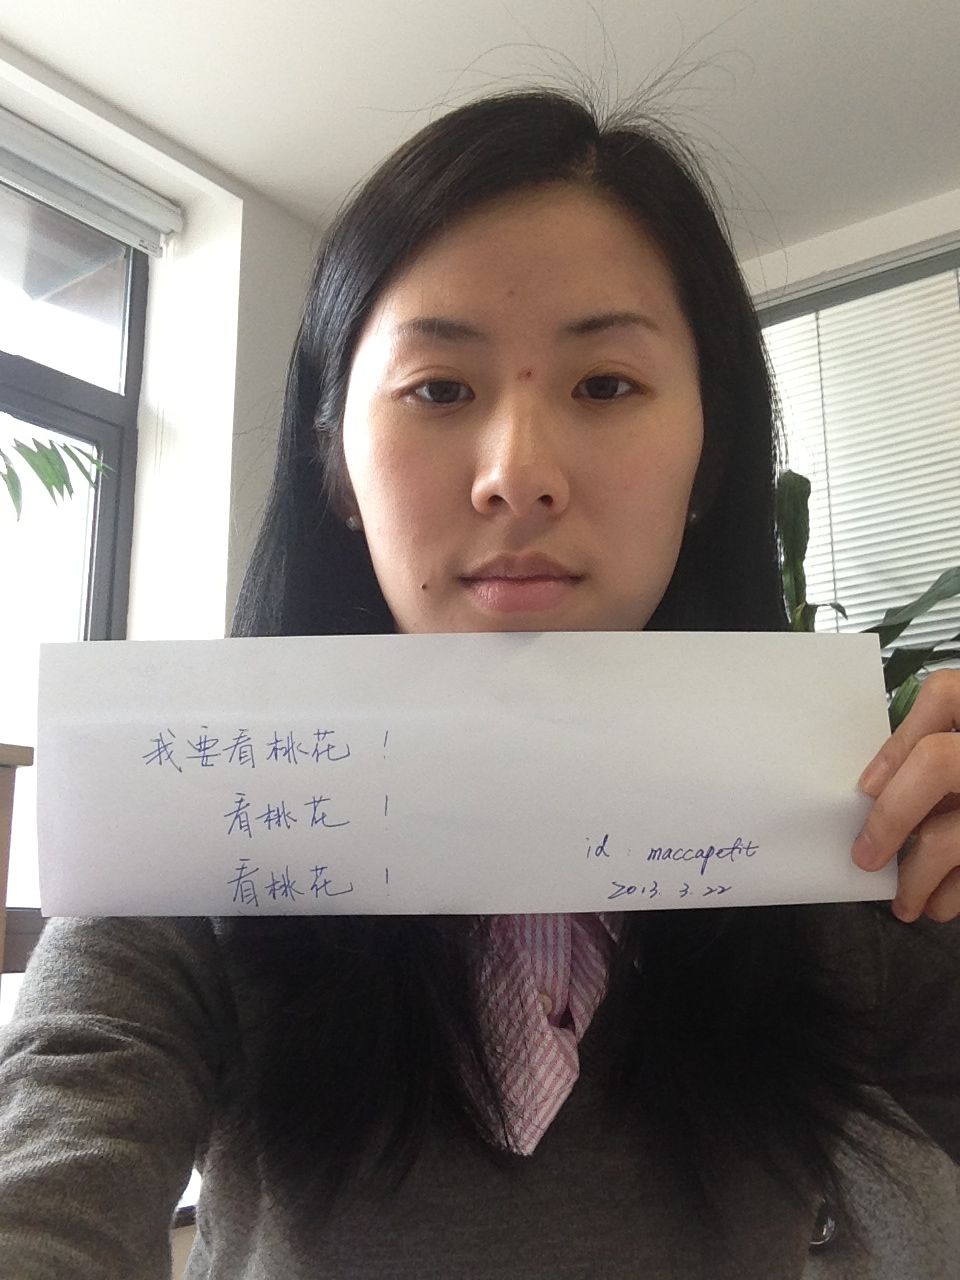 我要看桃花！
看桃花！
看桃花！
id: maccapetit
2013.3.22